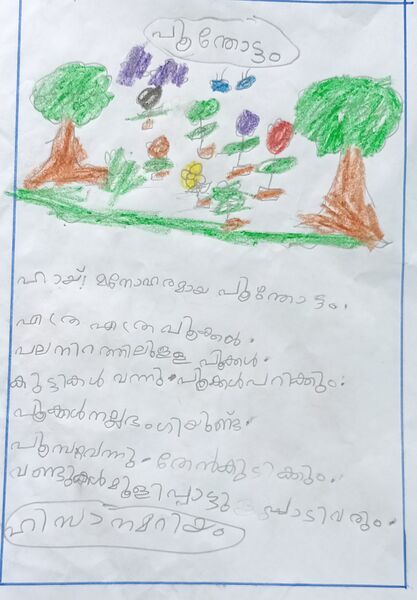 പൂന്തോട്ടം
ഹായ്! മനോഹരമായ പൂന്തോട്ടം.
എത്ര എത്ര പൂക്കൾ.
പല നിറത്തിലുള്ള പൂക്കൾ.
കുട്ടികൾ വന്നു പൂക്കൾ പറിക്കും.
പൂക്കൾ നല്ല ഭംഗിയുണ്ട്.
പൂമ്പറ്റ വന്നു തേൻ കുടിക്കും.
വണ്ടുകൾ മൂളിപ്പാട്ടു പാടി വരും.
ഹിസാനമറിയം